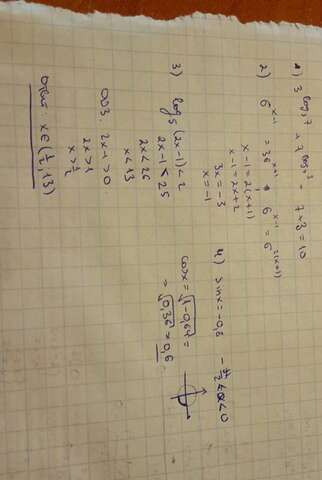 1) 3^{log_3 7} + 7^{log_7 3} = 7+3=10
2) 6^{x-1} = 36^{x+1} ; 6^{x-1} = 6^{2(x+1)}
x-1=2(x+1)
x-1=2x+2
3x=-3
x=-1
3) log_5 (2x-1)<2
2x-1<25
2x<26
x<13
ОДЗ: 2x-1>0
2x>1
x>1/2
Ответ: x∈(1/2, 13)
4) sin x=-0,8 -π/2<α<0
cos x=√(1-0,64)=
=√0,36=0,6